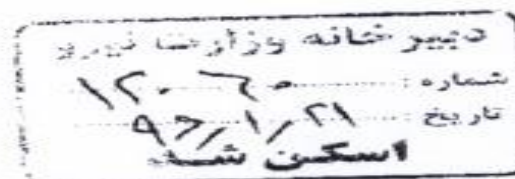 دبیرخانه وزارت نیرو
شماره: ۱۲۰۶۰
تاریخ: ۹۶/۱/۲۱
اسکن شد